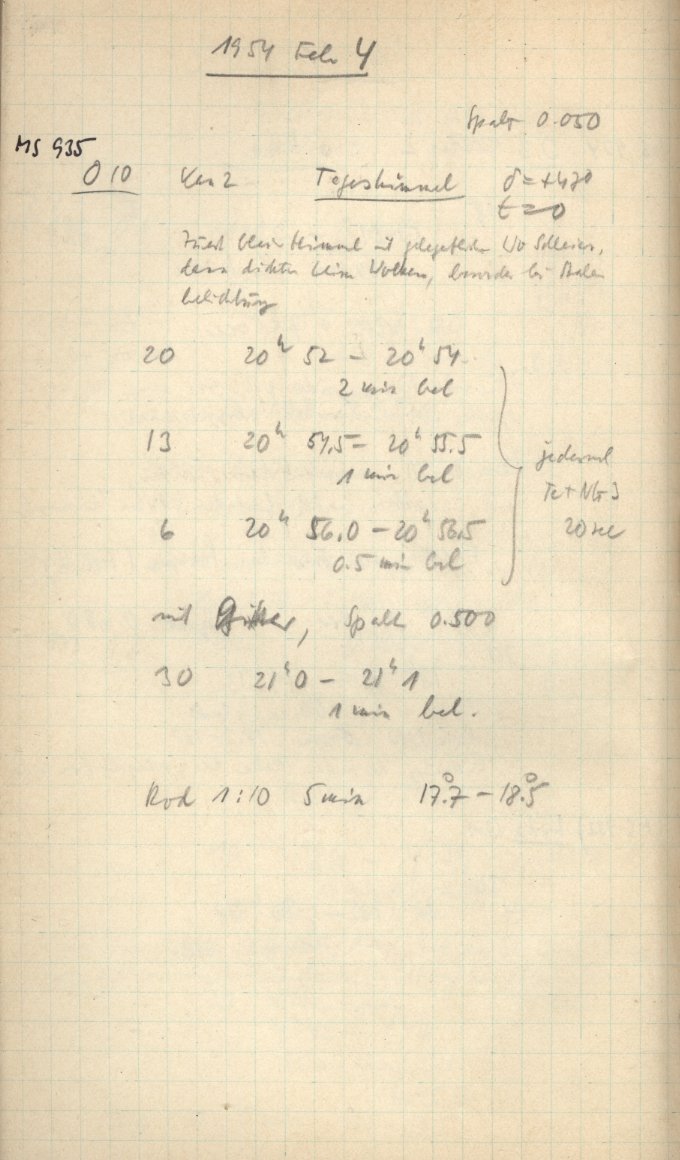 1954 Feb 4
Spalt 0.050
MS 935
O 10 Kam 2 Tageshimmel δ = +47°
t = 0
Zuerst blauer Himmel mit gelegentlichen Wo Schleier,
dann dichte Wolken, besonders bei
belichtung
20 20ʰ 52 – 20ʰ 54
2 min bel
13 20ʰ 54.5 – 20ʰ 55.5
1 min bel
6 20ʰ 56.0 – 20ʰ 56.5
0.5 min bel
jedesmal
Fe + Nr 3
20 sec
mit Gitter, Spalt 0.500
30 21ʰ 0 – 21ʰ 1
1 min bel.
Rod 1:10 5 min 17°.7 – 18°.5